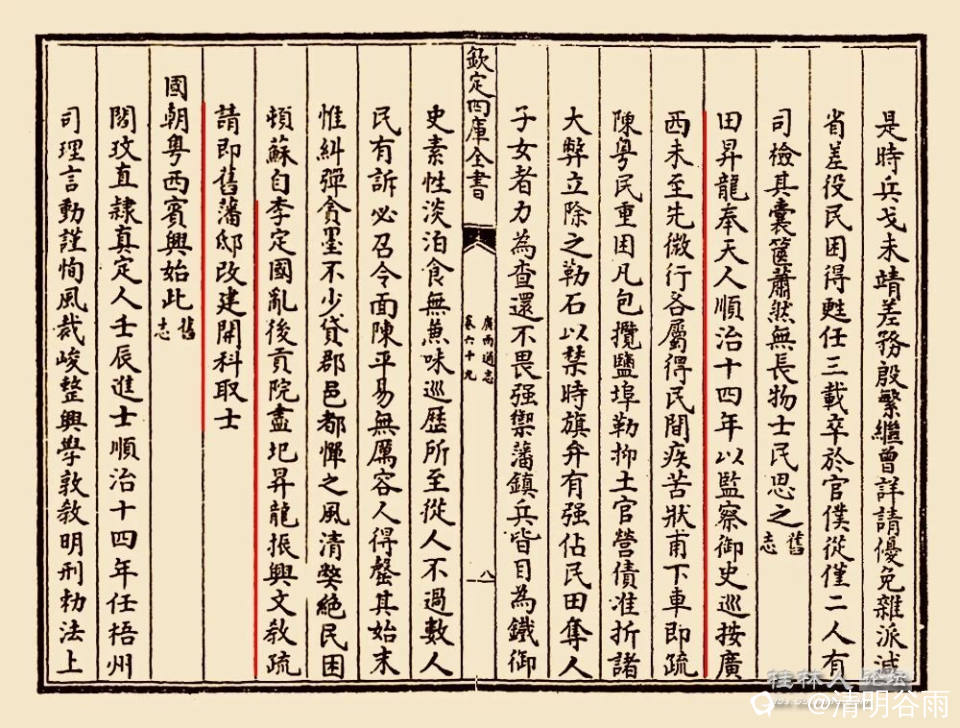 是時兵戈未靖差務殷繁繼曾詳請優免雜派減
省差役民困得甦任三載卒於官僕從僅二人有
司檢其囊篋蕭然無長物士民思之舊志
田昇龍奉天人順治十四年以監察御史巡按廣
西未至先微行各屬得民間疾苦狀甫下車即疏
陳粤民重困凡包攬鹽埠勒抑土官營債准折諸
大弊立除之勒石以禁時旗弁有强佔民田奪人
子女者力為查還不畏强禦藩鎮兵皆目為鐵御
欽定四庫全書
廣西通志
卷六十九
八
史素性淡泊食無兼味巡歷所至從人不過數人
民有訴必召令面陳平易無厲容人得罄其始末
惟糾彈貪墨不少貸郡邑都憚之風清弊絶民困
頓蘇自李定國亂後貢院盡圮昇龍振興文教疏
請即舊藩邸改建開科取士
國朝粤西賓興始此舊志
閻玟直隸真定人壬辰進士順治十四年任梧州
司理言動謹恂風裁峻整興學敦教明刑勑法上
桂林人
@清明谷雨